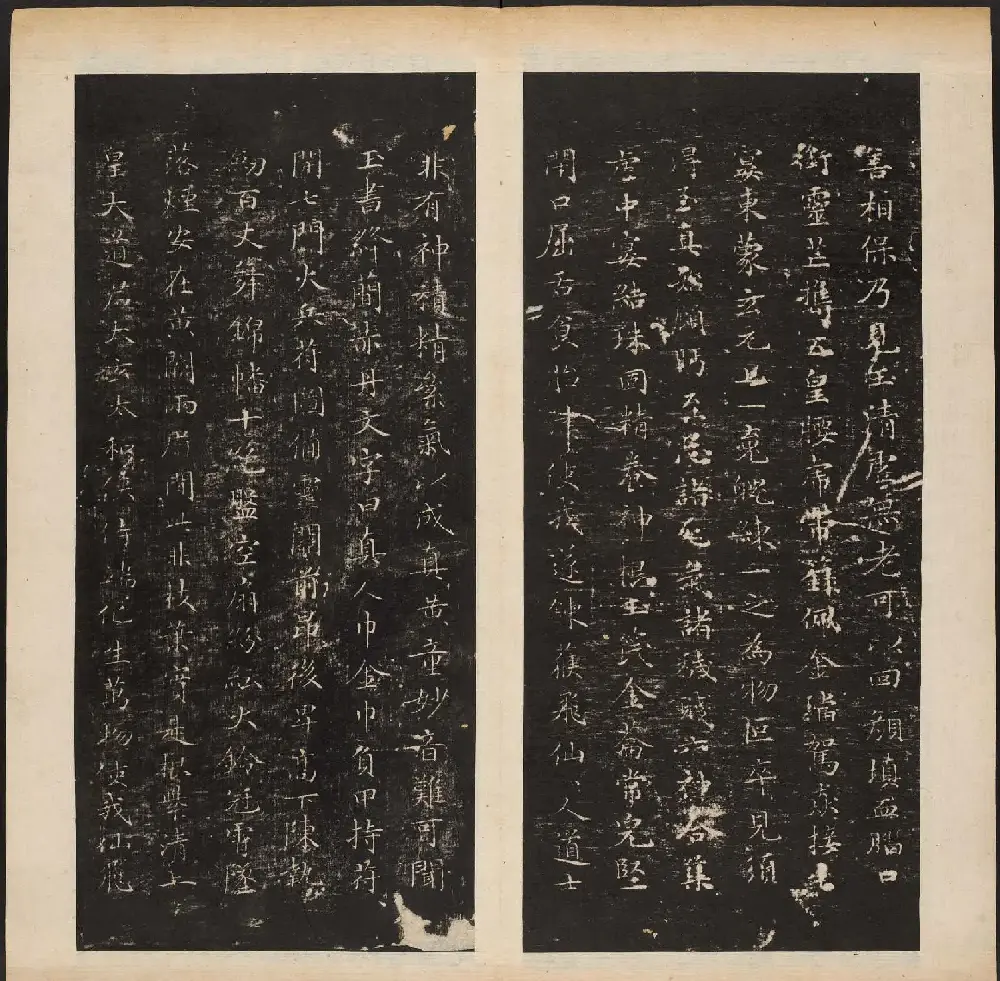 善相保乃見玉清虛無老可以回顏填血腦口
銜靈芒攜五皇腰帶虎籙佩金璫駕欻接生
宴東蒙玄元上一魂魄練一之為物叵卒見須
得至真始顧眄至忌諸死氣諸穢賤六神合集
虛中宴結珠固精養神根玉笢金籥常完堅
閉口屈舌食胎津使我遂練獲飛仙仙人道士
非有神積精累氣以成真黃童妙音難可聞
玉書絳簡赤丹文字曰真人巾金巾負甲持符
開七門火兵符圖備靈關前昂後卑高下陳執
劒百丈舞錦幡十絕盤空扇紛紜火鈴冠霄墜
落煙安在黃闕兩眉間此非枝葉實是根紫清上
皇大道君太玄太和俠侍端化生萬物使我仙飛